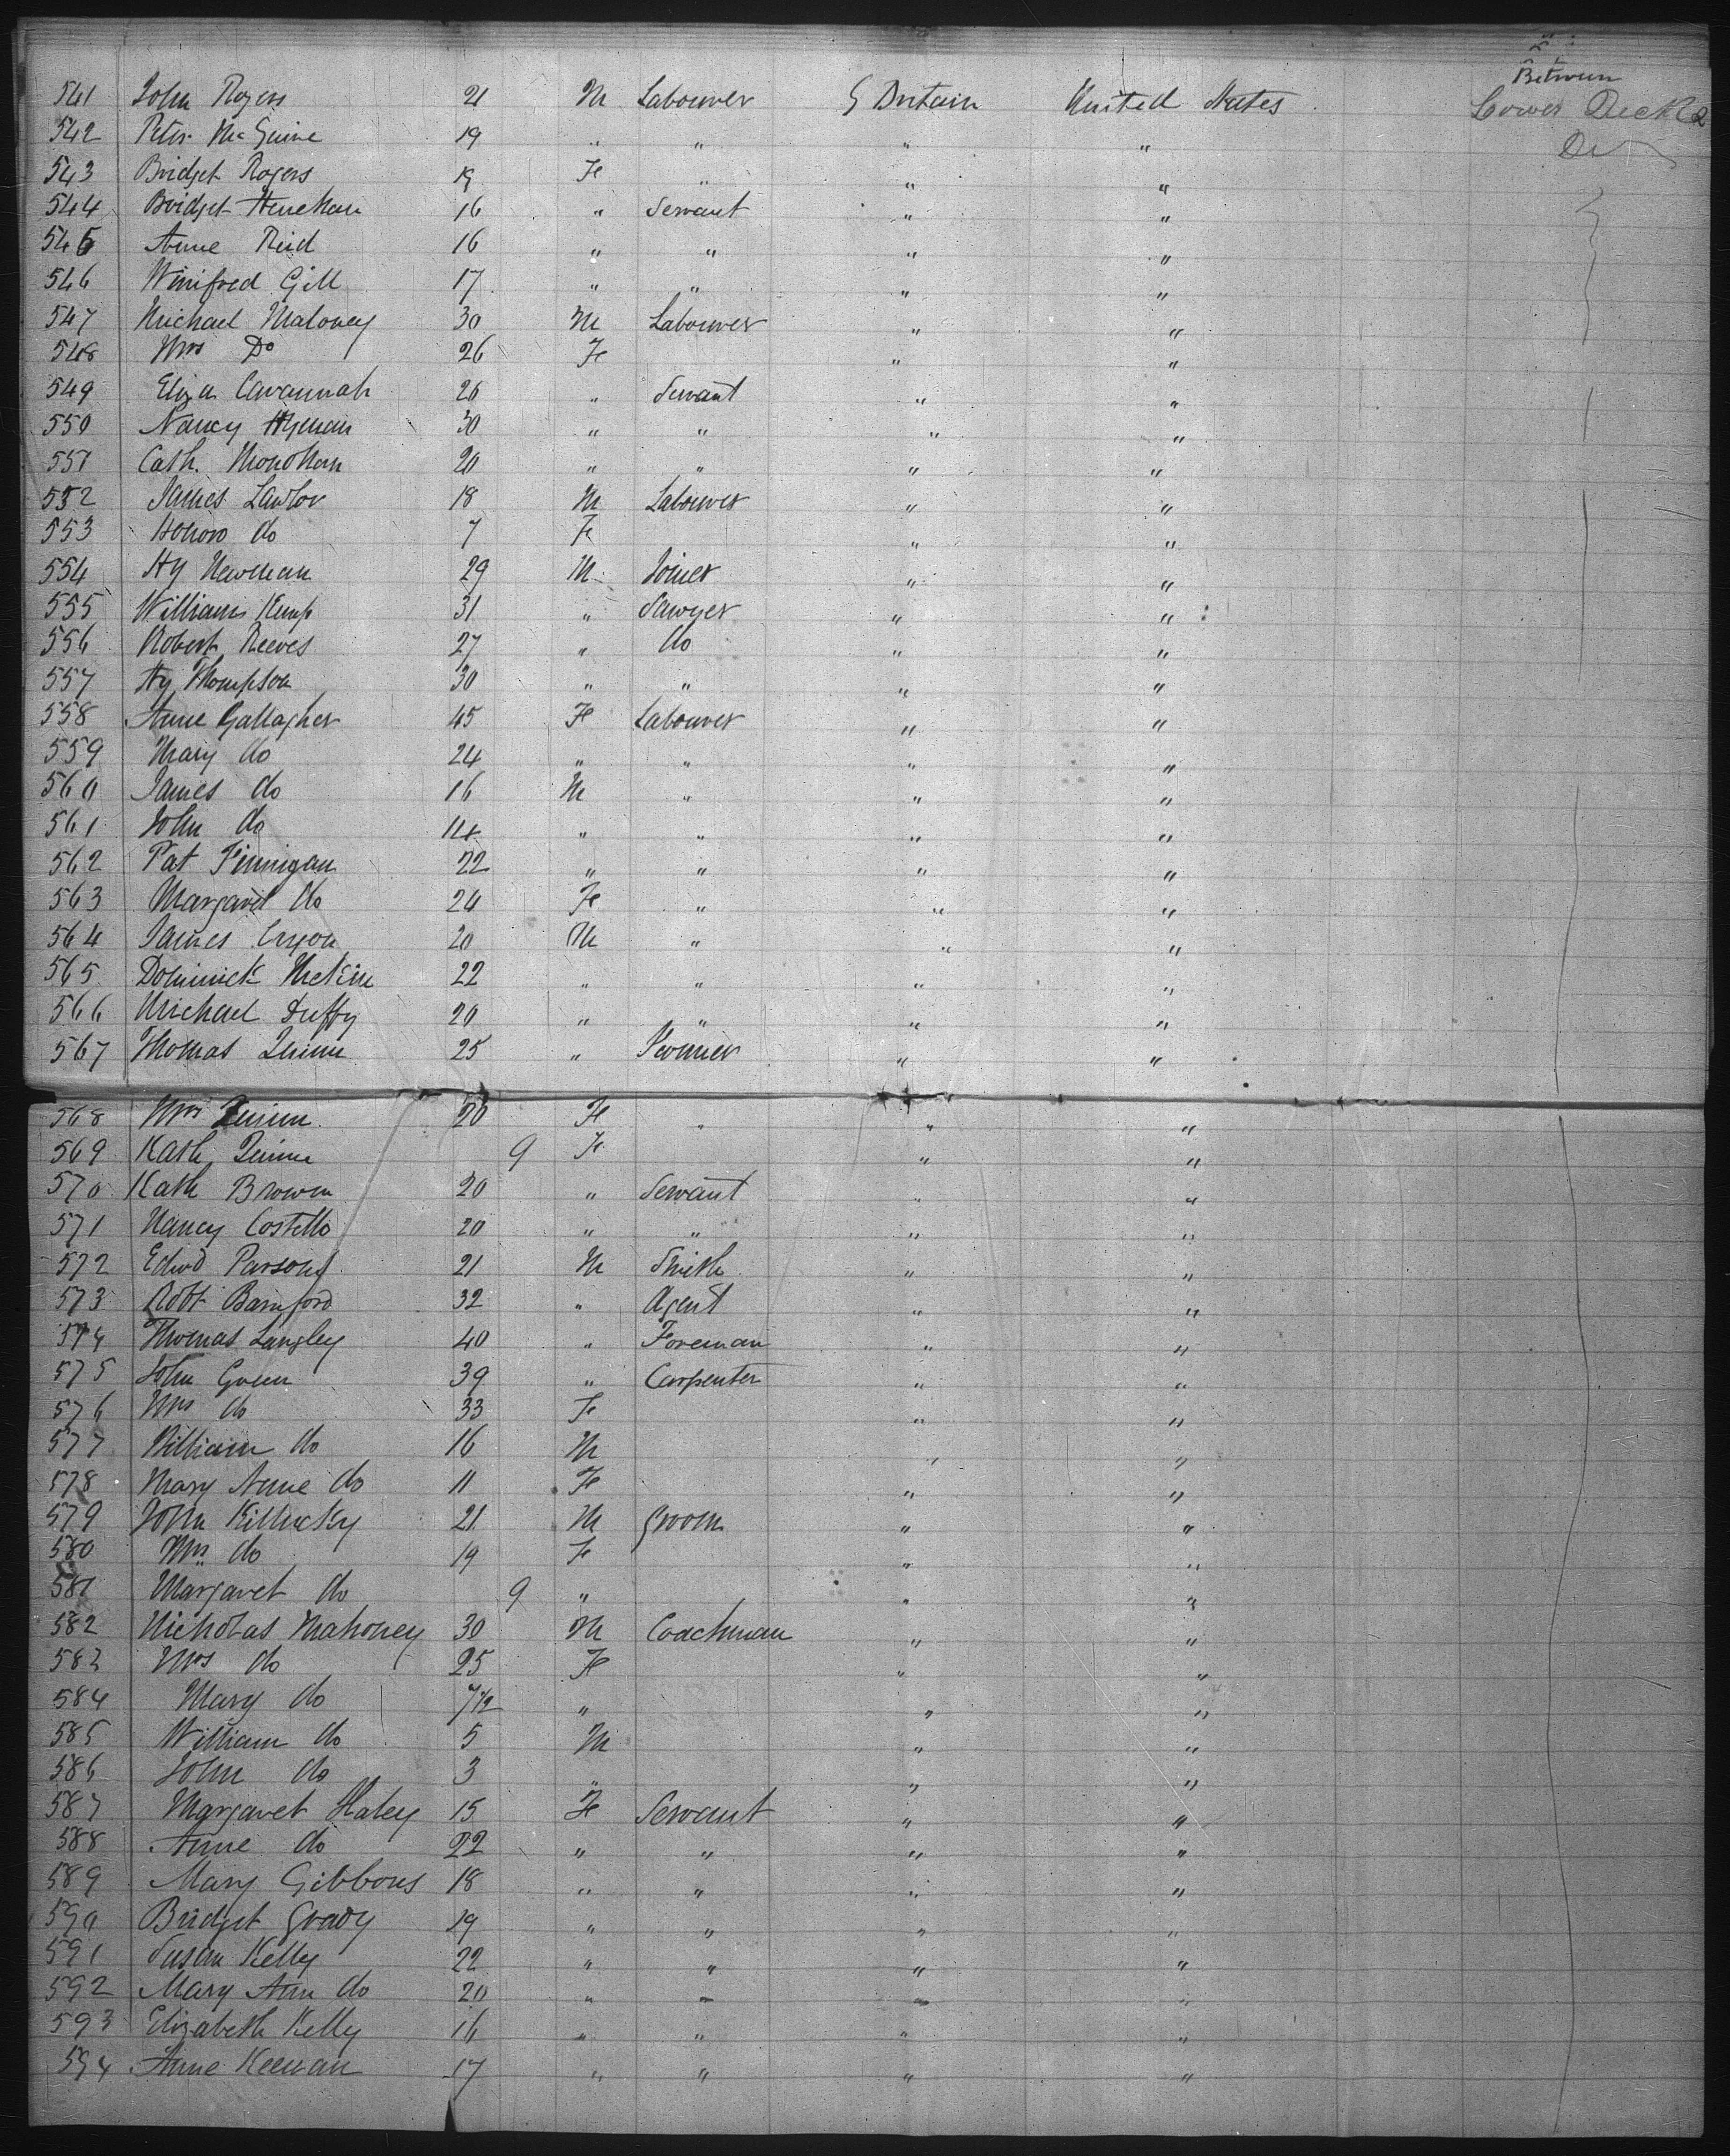 Between
541 John Rogers 21 M Labourer G Britain United States Lower Deck 2
542 Peter McGuire 19 " " " "
543 Bridget Rogers 19 Fe " " "
544 Bridget Henehan 16 " Servant " "
545 Anne Reid 16 " " " "
546 Winifred Gill 17 " " " "
547 Michael Maloney 30 M Labourer " "
548 Mrs Do 26 Fe " "
549 Eliza Cavannah 26 " Servant " "
550 Nancy Hyman 30 " " " "
551 Cath. Monohan 20 " " " "
552 James Lawlor 18 M Labourer " "
553 Honoro do 7 Fe " "
554 Hy Newman 29 M Joiner " "
555 William Kemp 31 " Sawyer " "
556 Robert Reeves 27 " do " "
557 Hy Thompson 30 " " " "
558 Anne Gallagher 45 Fe Labourer " "
559 Mary do 24 " " " "
560 James do 16 M " " "
561 John do 14 " " " "
562 Pat Finnigan 22 " " " "
563 Margaret do 24 Fe " " "
564 James Cryon 20 M " " "
565 Dominick 22 " " " "
566 Michael Duffy 20 " " " "
567 Thomas Quinn 25 " " "
568 Mrs Quinn 20 Fe " " "
569 Kath Quinn 9 Fe " "
570 Kath Brown 20 " Servant " "
571 Nancy Costello 20 " " " "
572 Edwd Parsons 21 M Smith " "
573 Robt Bamford 32 " Agent " "
574 Thomas Langley 40 " Foreman " "
575 John Green 39 " Carpenter " "
576 Mrs do 33 Fe " "
577 William do 16 M " "
578 Mary Anne do 11 Fe " "
579 John Killucky 21 M Groom " "
580 Mrs do 19 Fe " "
581 Margaret do 9 " " "
582 Nicholas Mahoney 30 M Coachman " "
583 Mrs do 25 Fe " "
584 Mary do 7½ " " "
585 William do 5 M " "
586 John do 3 " " "
587 Margaret Haley 15 Fe Servant " "
588 Anne do 22 " " " "
589 Mary Gibbons 18 " " " "
590 Bridget Grady 19 " " " "
591 Susan Kelly 22 " " " "
592 Mary Ann do 20 " " " "
593 Elizabeth Kelly 16 " " " "
594 Anne Keenan 17 " " " "